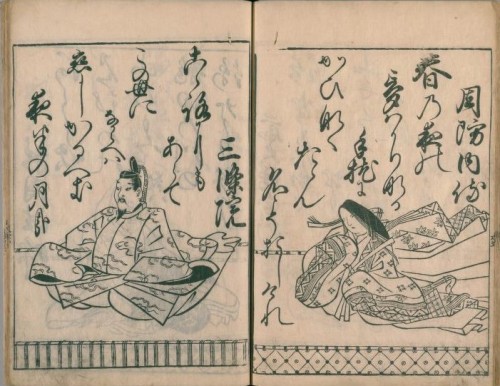 周防内侍
春乃夜の
夢はかりなる
手枕に
かひなく
たゝん
名こそおしけれ
三條院
こゝろにも
あらて
うき世に
なからへは
恋しかるへき
夜半の月哉